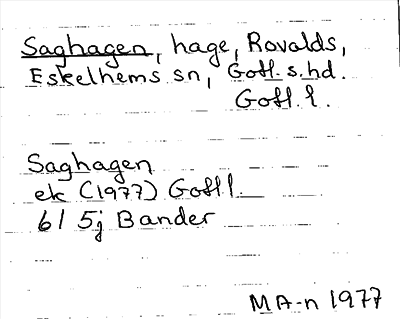 Saghagen, hage, Rovalds,
Eskelhems sn, Gotl. s. hd.
Gotl. l.
Saghagen
ek (1977) Gotl l.
6I 5j Bander
MA-n 1977